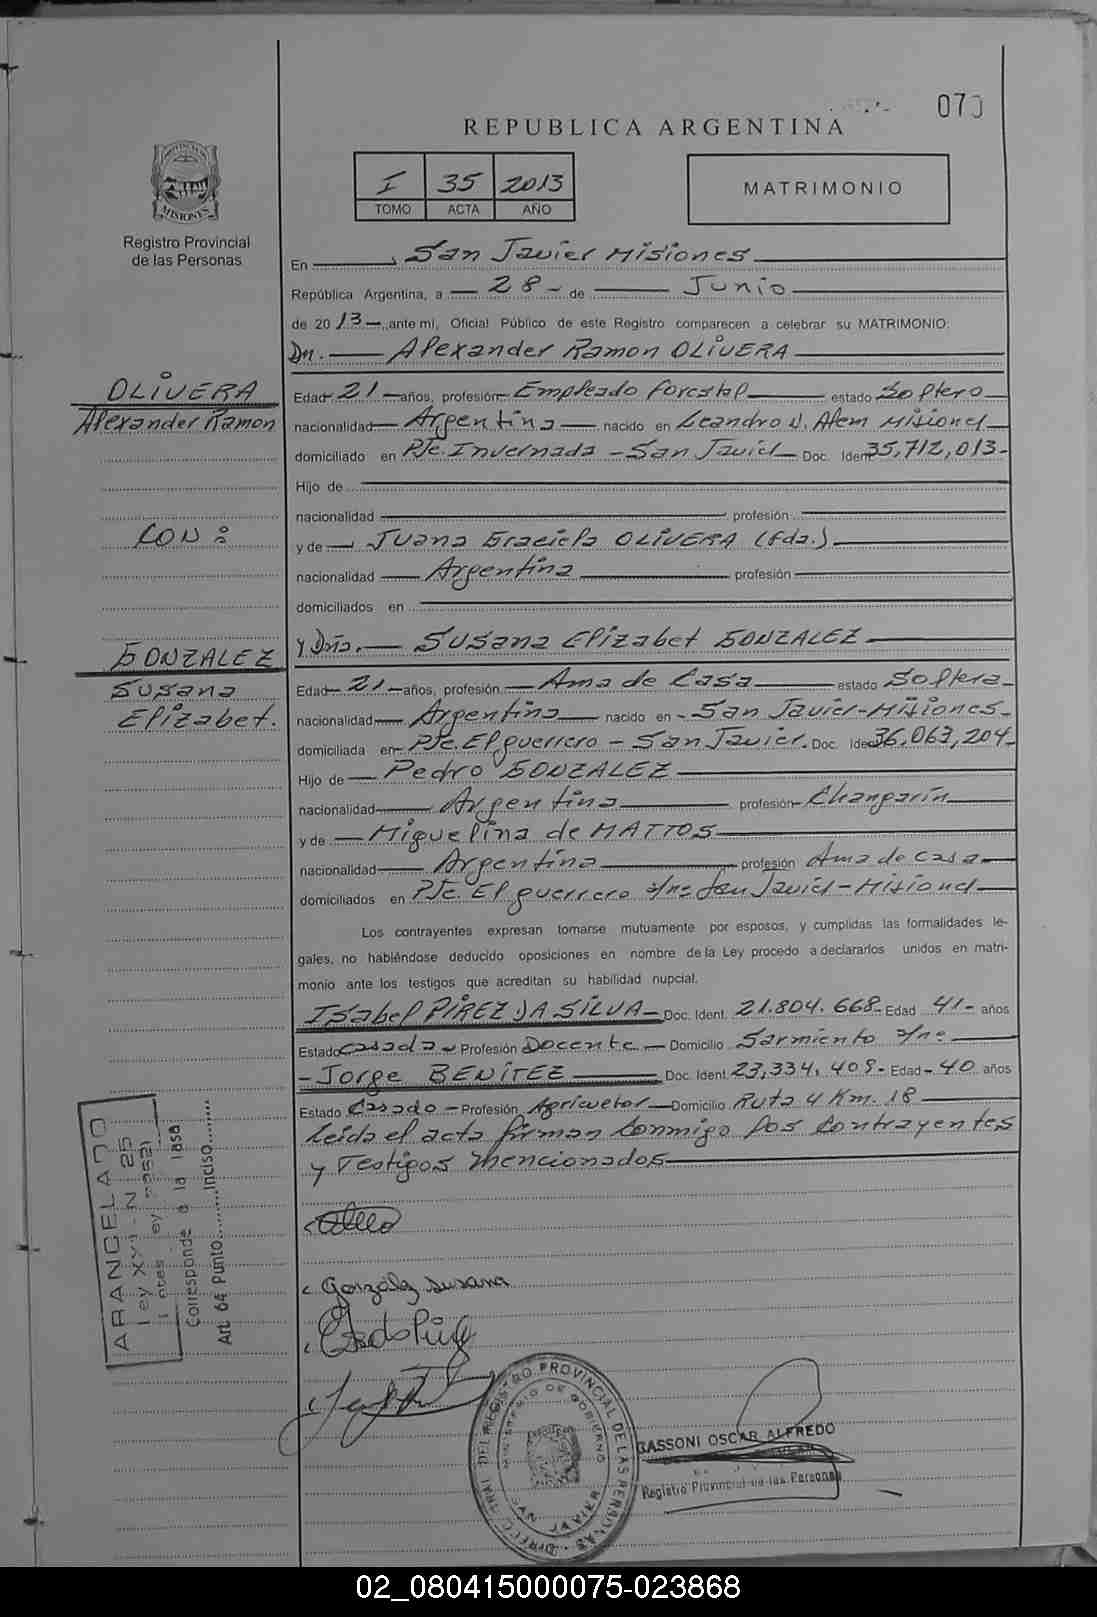 070
REPUBLICA ARGENTINA
I 35 2013
TOMO ACTA AÑO
MATRIMONIO
MISIONES
Registro Provincial
de las Personas
En San Javier Misiones
República Argentina, a 28 - de Junio
de 2013 ante mi, Oficial Público de este Registro comparecen a celebrar su MATRIMONIO:
Dn. Alexander Ramon OLIVERA
OLIVERA
Alexander Ramon
CON:
GONZALEZ
Susana
Elizabet.
Edad 21 años, profesión Empleado forestal estado Soltero
nacionalidad Argentina nacido en Leandro N. Alem Misiones
domiciliado en Pje. Invernada - San Javier Doc. Ident 35,712,013-
Hijo de
nacionalidad profesión
y de Juana Graciela OLIVERA (fda.)
nacionalidad Argentina profesión
domiciliados en
y Dña. Susana Elizabet GONZALEZ
Edad 21 años, profesión Ama de Casa estado Soltera
nacionalidad Argentina nacido en San Javier-Misiones-
domiciliada en Pje. El guerrero - San Javier. Doc. Ident 36,063,204-
Hijo de Pedro GONZALEZ
nacionalidad Argentina profesión Changarin
y de Miguelina de MATTOS
nacionalidad Argentina profesión Ama de casa
domiciliados en Pje. El guerrero s/nº San Javier-Misiones
Los contrayentes expresan tomarse mutuamente por esposos, y cumplidas las formalidades le-
gales, no habiéndose deducido oposiciones en nombre de la Ley procedo a declararlos unidos en matri-
monio ante los testigos que acreditan su habilidad nupcial.
Isabel PIREZ DA SILVA Doc. Ident. 21.804.668- Edad 41- años
Estado casada Profesión Docente Domicilio Sarmiento s/nº
- Jorge BENITEZ Doc. Ident. 23,334,409- Edad 40 años
Estado Casado - Profesión Agricultor Domicilio Ruta 4 Km. 18
Leida el acta firman conmigo los contrayentes
y Testigos mencionados
González Susana
ARANCELADO
Ley XVI - N 25
Corresponde a la Tasa
Art. 64 Punto Inciso
REGISTRO PROVINCIAL DE LAS PERSONAS
MINISTERIO DE GOBIERNO
SAN JAVIER
GASSONI OSCAR ALFREDO
Registro Provincial de las Personas
02_080415000075-023868